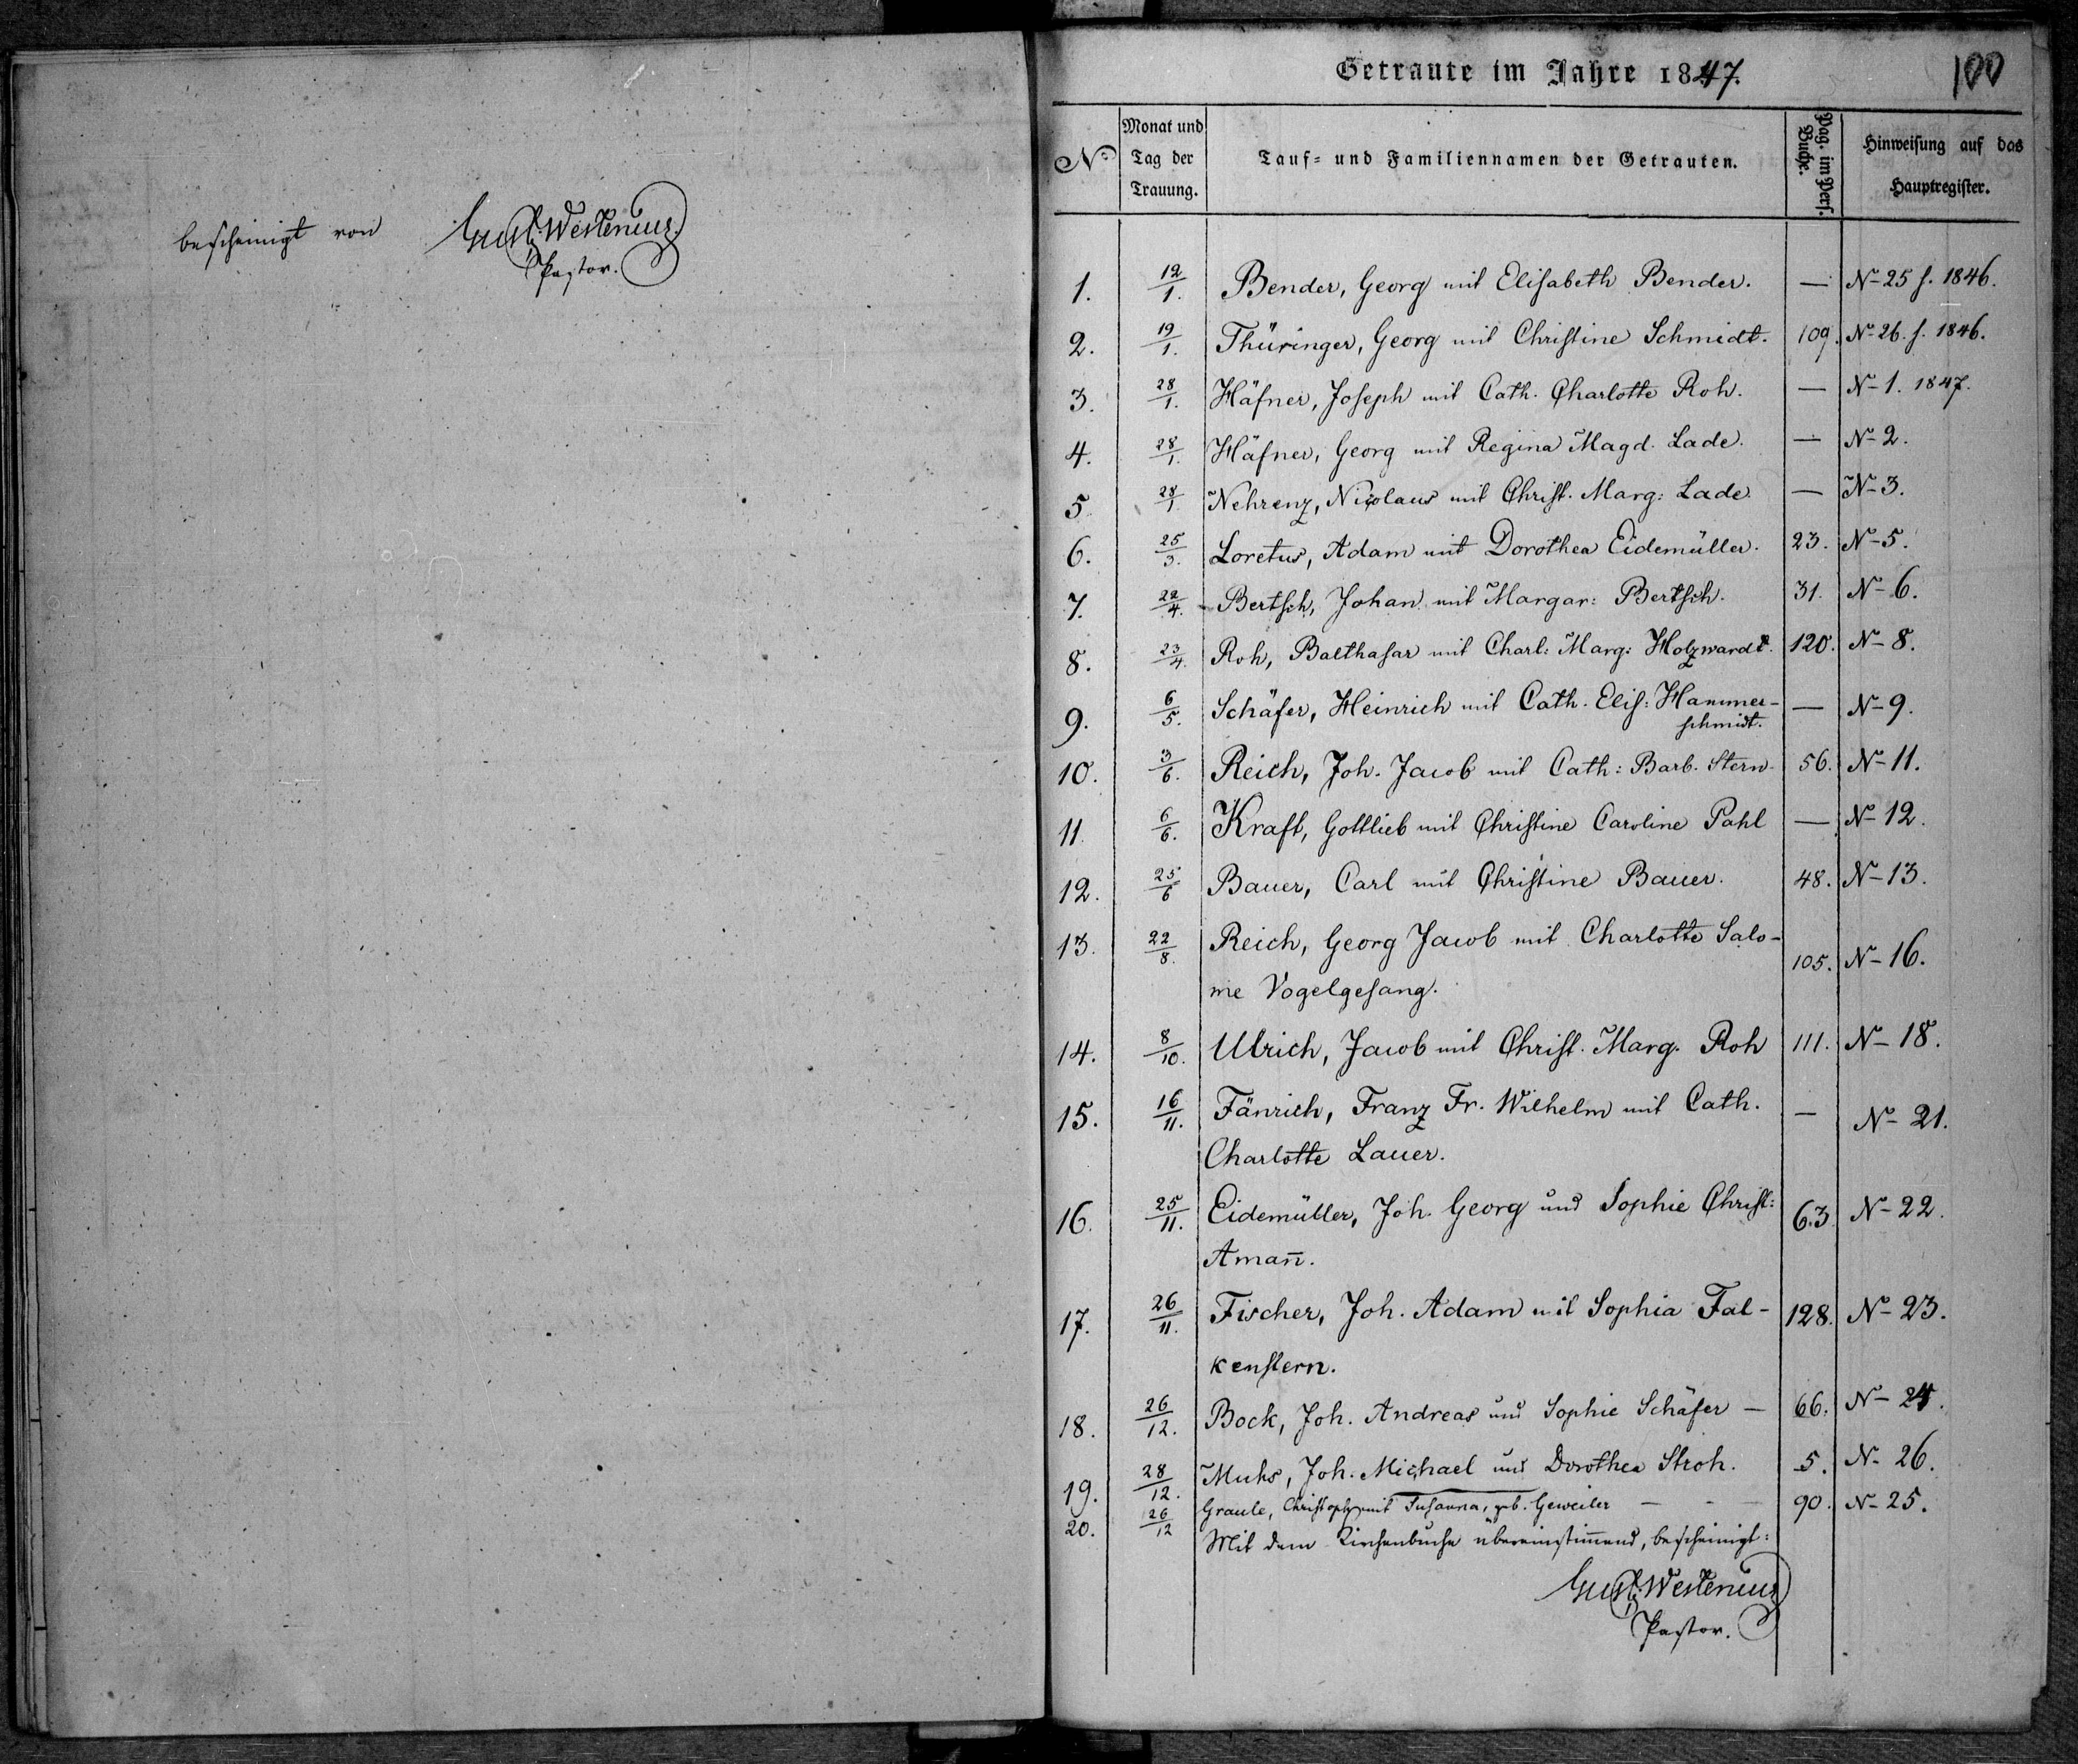 bescheinigt von Gust. Westenius.
Pastor.
Getraute im Jahre 1847.
100
No
Monat und Tag der Trauung.
Tauf- und Familiennamen der Getrauten.
Pag. im Pers. Buche.
Hinweisung auf das Hauptregister.
1. 12/1. Bender, Georg mit Elisabeth Bender. — No 25 f. 1846.
2. 19/1. Thüringer, Georg mit Christine Schmidt. 109. No 26. f. 1846.
3. 28/1. Häfner, Joseph mit Cath. Charlotte Roh. — No 1. 1847.
4. 28/1. Häfner, Georg mit Regina Magd. Lade. — No 2.
5 28/1 Nehrenz, Nicolaus mit Christ. Marg: Lade. — No 3.
6. 25/3. Loretus, Adam mit Dorothea Eidemüller. 23. No 5.
7. 22/4. Bertsch, Johan mit Margar: Bertsch. 31. No 6.
8. 23/4. Roh, Balthasar mit Charl: Marg: Holzwardt. 120. No 8.
9. 6/5. Schäfer, Heinrich mit Cath. Elis: Hammer- — No 9.
schmidt.
10. 3/6. Reich, Joh. Jacob mit Cath: Barb. Stern 56. No 11.
11. 6/6. Kraft, Gottlieb mit Christine Caroline Pahl — No 12.
12. 25/6 Bauer, Carl mit Christine Bauer. 48. No 13.
13. 22/8. Reich, Georg Jacob mit Charlotte Salo-
me Vogelgesang. 105. No 16.
14. 8/10. Ulrich, Jacob mit Christ. Marg. Roh 111. No 18.
15. 16/11. Fänrich, Franz Fr. Wilhelm mit Cath. — No 21.
Charlotte Lauer.
16. 25/11. Eidemüller, Joh. Georg und Sophie Christ: 63. No 22.
Aman̄.
17. 26/11. Fischer, Joh. Adam mit Sophia Fal- 128. No 23.
kenstern.
18. 26/12. Bock, Joh. Andreas und Sophie Schäfer — 66. No 24.
19. 28/12. Muhs, Joh. Michael und Dorothea Stroh. 5. No 26.
20. 26/12 Graule, Christoph mit Susanna, geb. Geweiler — - — 90. No 25.
Mit dem Kirchenbuche übereinstim̄end, bescheinigt:
Gust. Westenius
Pastor.